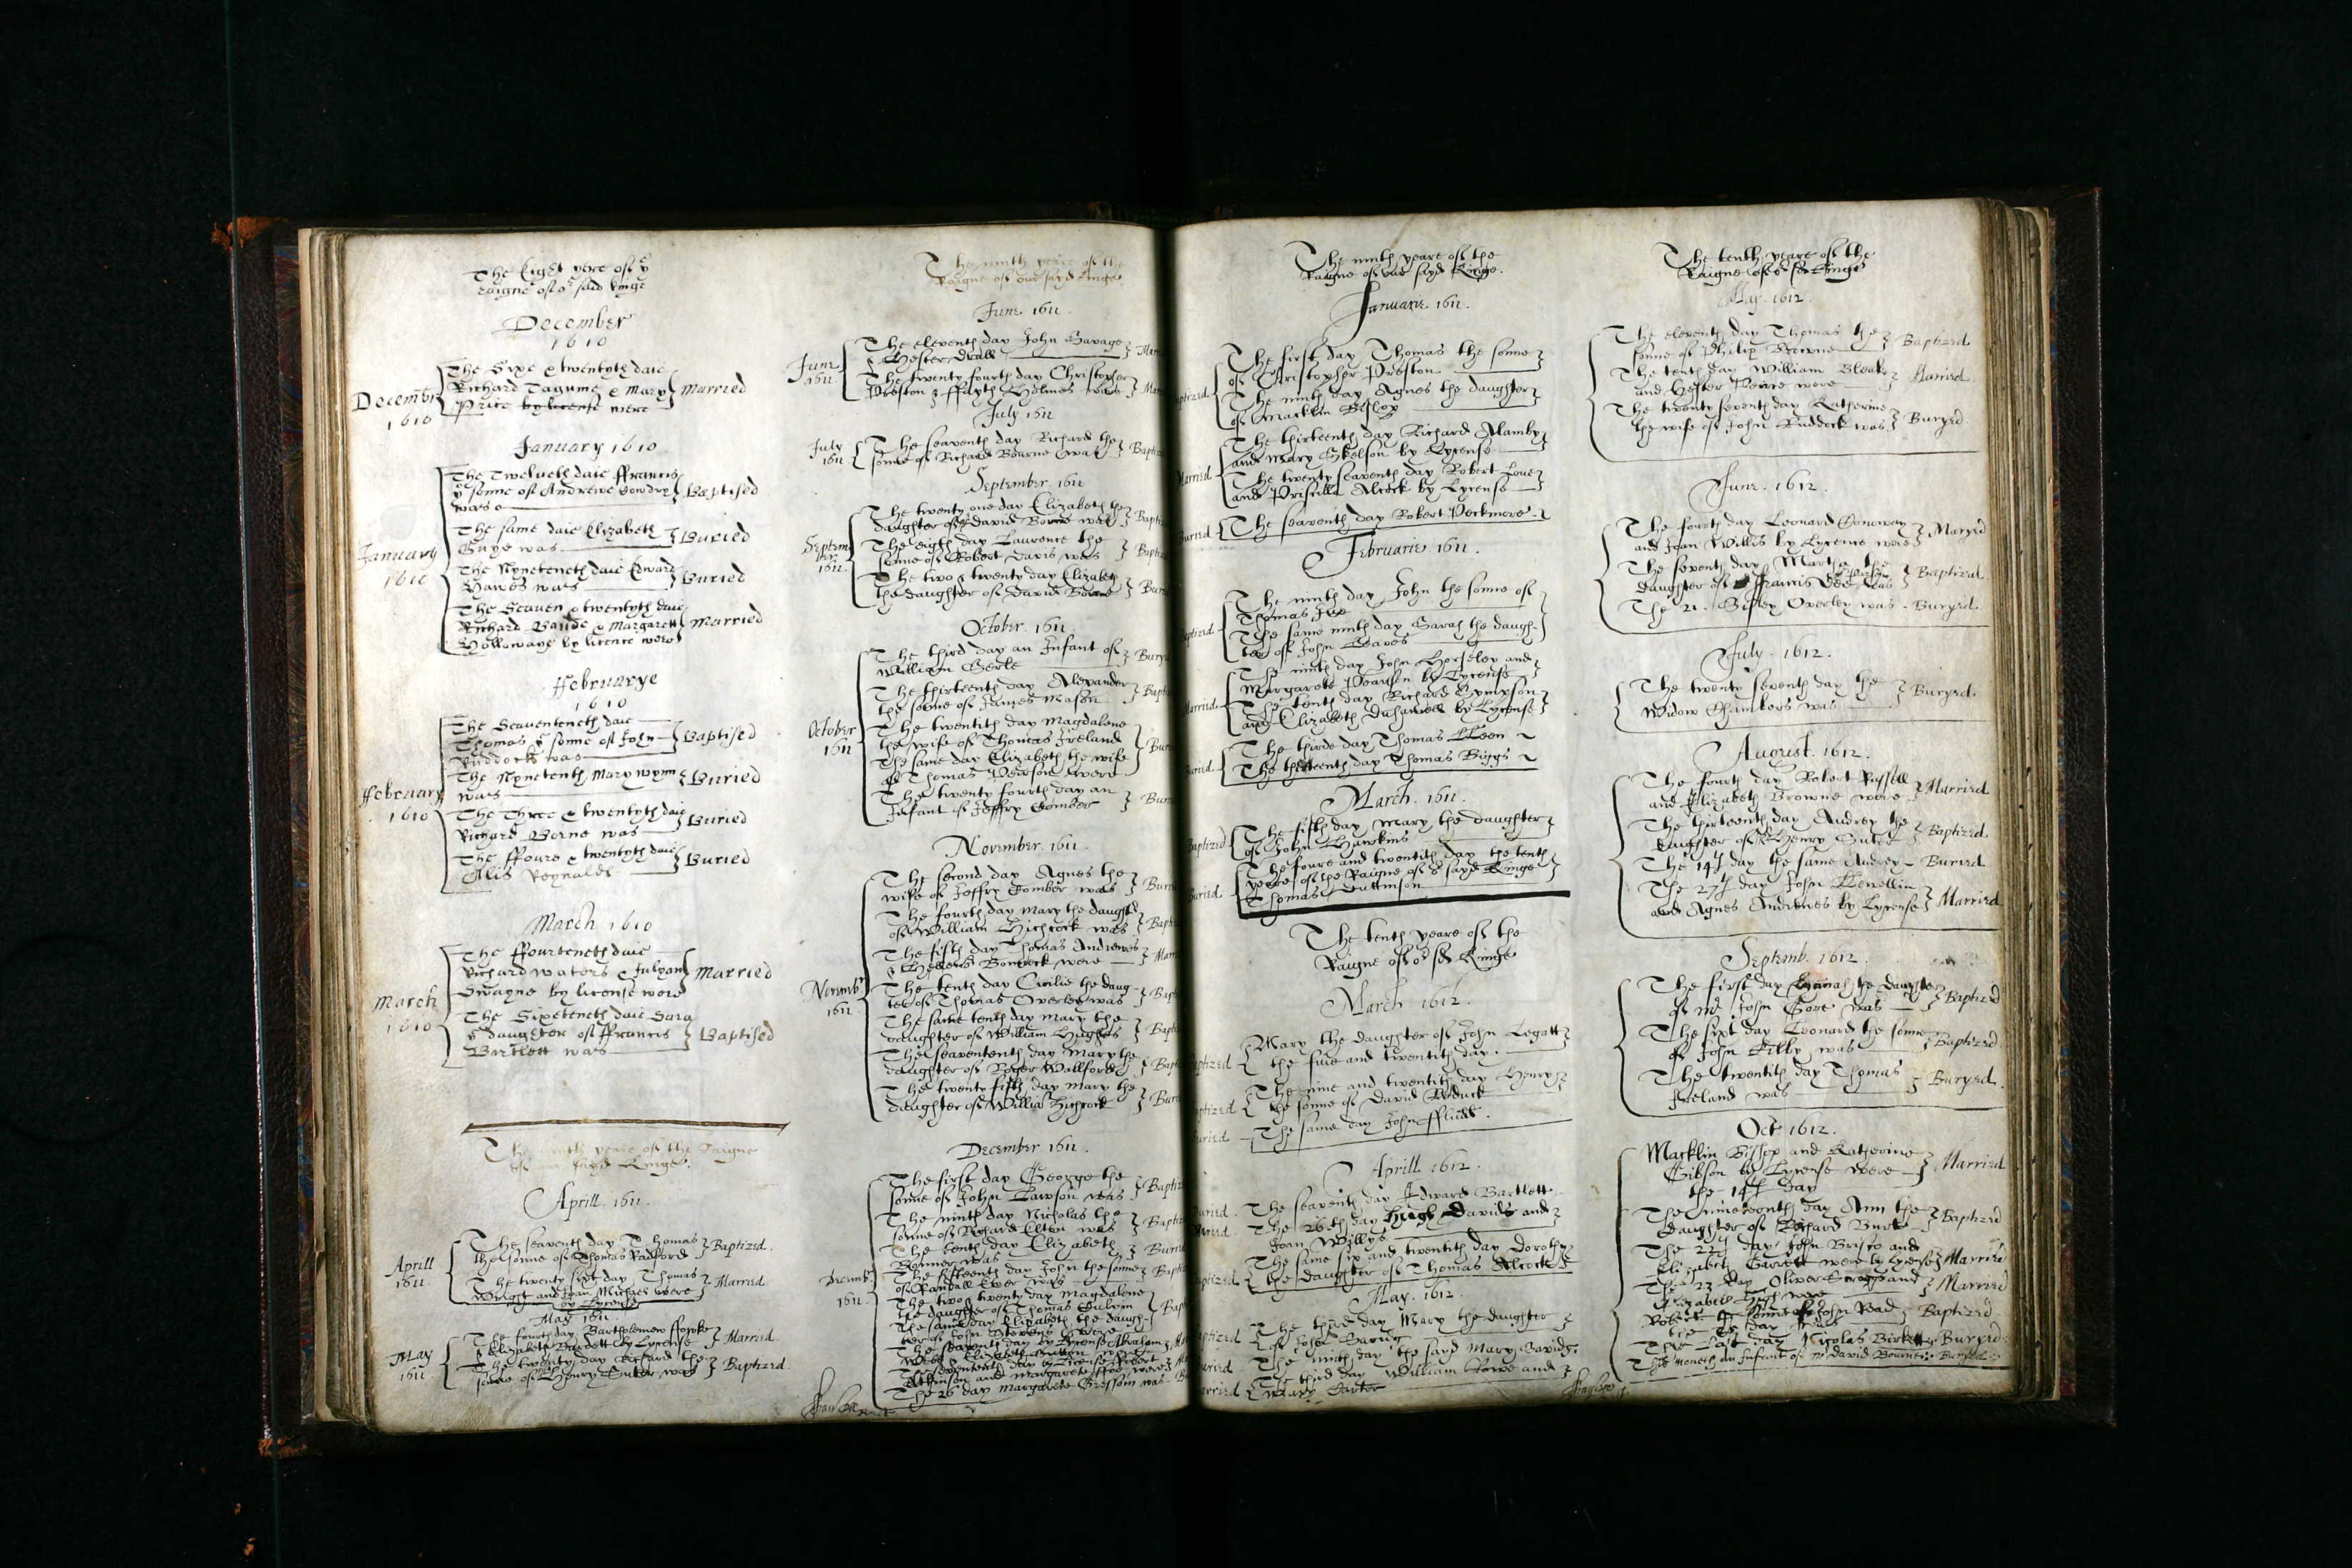 The Eight yere of yͤ
raigne of oͬ said kinge
December
1610
December
1610
The Sixe & twentyth daie
Richard Tagume & Mary
Price by license were
Married
January 1610
January
1610
The Twelveth daie ffrancis
yͤ sonne of Andrewe Cowdry
was
Baptised
The same daie Elizabeth
Guye was
Buried
The Nyneteneth daie Edward
Hawes was
Buried
The Seaven & twentyth daie
Richard Baude & Margarett
Hollowaye by licence were
Married
ffebruarye
1610
ffebruary
1610
The Seaventeneth daie
Thomas yͤ sonne of John
Ruddock was
Baptised
The Nynetenth Mary wynn
was
Buried
The Three & twentyth daie
Richard Borne was
Buried
The ffoure & twentyth daie
Alis Reynalds
Buried
March 1610
March
1610
The ffourteneth daie
Richard waters & Julyan
Swayne by license were
Married
The Sixteneth daie Sara
yͤ daughter of ffrancis
Bartlett was
Baptised
The ninth yeare of the Raigne
of our sayd Kinge.
Aprill. 1611.
Aprill
1611.
The seaventh day Thomas
the sonne of Thomas Radford
Baptized.
The twenty sixt day Thomas
Wright and Joan Michael were
by Lycense
Married.
May 1611
May
1611
The fourth day Bartholomew
& Elizabeth Bardett by Lycense
Married.
The twenty day Richard the
sonne of Henry Suter was
Baptized
The ninth yeare of the
Raigne of our sayd Kinge
June. 1611.
June
1611.
The eleventh day John Savage
& Hester
The twenty fourth day Christopher
Preston & ffayth Holmes were
July 1611
July
1611
The seaventh day Richard the
sonne of Richard Bourne was
September. 1611
Septem
ber.
1611.
The twenty one day Elizabeth the
daughter of David Borne was
The eigth day Laurence the
sonne of Robert Davis was
The two & twenty day Elizabeth
the daughter of David Borne
October. 1611.
October
1611
The third day an Infant of
William Gerle
The thirteenth day Alexander
the sonne of James Mason
The twentith day Magdalene
the wife of Thomas Ireland
The same day Elizabeth the wife
of Thomas Pearson were
The twenty fourth day an
Infant of Jeffry Comber
November. 1611.
Novemb
1611.
The second day Agnes the
wife of Jeffry Comber was
The fourth day Mary the daught
of William Hichcock was
The fifth day Thomas Andrewes
& were
The tenth day Cicilie the daug-
ter of Thomas Overley was
The same tenth day Mary the
daughter of William Hughes
The seavententh day Mary the
daughter of Roger Wallford
The twenty fifth day Mary the
daughter of William Hichcock
December 1611.
Decemb
1611.
The first day George the
sonne of John Lawson was
The ninth day Nicolas the
sonne of Richard Elton was
The tenth day Elizabeth
Bonner was
The fifteenth day John the sonne
of Randall Ewer was
The two & twenty day Magdalene
the daughter of Thomas
The same day Elizabeth the daugh-
ter of John Stevens were
The seaventh day by Lycense Abraham
The sevententh day by Lycense Robert
Atkinson and Margarete were
The 26 day Margarete Gressom was
The ninth yeare of the
Raigne of our sayd Kinge.
Januarie. 1611.
The first day Thomas the sonne
of Christopher Preston
The ninth day Agnes the daughter
of Macklin Bishop
The thirteenth day Richard Mamby
and Mary Skelson by Lycense
The twenty seaventh day Robert Love
and Priscilla Alcock by Lycense
The seaventh day Robert Peckmore
Februarie 1611.
The ninth day John the sonne of
Thomas Ive
The same ninth day Sarah the daugh-
ter of John Reaves
The ninth day John Horseley and
Margarete Pearson by Lycense
The tenth day Richard Sympson
and Elizabeth by Lycense
The thirde day Thomas
The thirteenth day Thomas Biggs
March. 1611.
Baptized
The fifth day Mary the daughter
of John Hawkins
Buried.
The foure and twentith day the tenth
yeare of the Raigne of oͬ sayd Kinge
Thomas Buttinson
The tenth yeare of the
Raigne of oͬ sd Kinge
March 1612.
Mary the daughter of John Legatt
the five and twentith day.
The nine and twentith day Henry
the sonne of David
The same day John ffludd.
Aprill 1612.
The seaventh day Edward Bartlett
The 26th day Hugh Davids and
Joan Willys
The same six and twentith day Dorothy
the daughter of Thomas Alcock
May. 1612.
The third day Mary the daughter
of
The ninth day the sayd Mary
The third day William and
Mary Carter
The tenth yeare of the
Raigne of oͬ sd Kinge
May. 1612
The eleventh day Thomas the
sonne of Philip Browne
Baptized
The tenth day William Bleak
and Hester Pearce were
Married.
The twenty seventh day Katherine
the wife of John Ruddock was
Buryed
June. 1612.
The fourth day Leonard Conoway
and Joan Willis by Lycence were
Maryed
The seventh day Martha the
daughter of ffrancis was
Baptized.
The 21. Sisley Overley was
Buryed.
July. 1612.
The twenty seventh day the
Widow Chambers was
Buryed.
August. 1612.
The fourth day Robert Russell
and Elizabeth Browne were
Married
The thirteenth day Audrey the
daughter of Henry Suter
Baptized
The 14th day the same Audrey
Buried
The 27th day John Llewellin
and Agnes Andrewes by Lycense
Married
Septemb. 1612.
The first day the daughter
of mͬ John Gore was
Baptized
The sixt day Leonard the sonne
of John Tilby was
Baptized
The twentith day Thomas
Ireland was
Buryed.
Oct 1612.
Macklin Bishop and Katherine
Gibson by Lycense were
the 14th day
Married
The nineteenth day Ann the
daughter of Richard Burt
Baptized
The 22th day John Brisco and
Elizabeth Garrett were by Lycense
Married
The 23 day Oliver Scroggs and
Elizabeth were
Married
Robert the sonne of John Bad
Baptized
The Last day Nicolas Birkett
Buryed
This moneth an Infant of mͬ David Bourne
Buryed